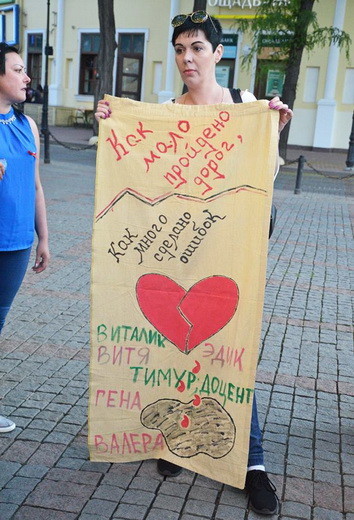 ОЩАДБА
Как
мало
пройдено
дорог,
Как
много
сделано
ошибок
ВИТАЛИК
ВИТЯ ЭДИК
ТИМУР, ДОЦЕНТ
ГЕНА
ВАЛЕРА